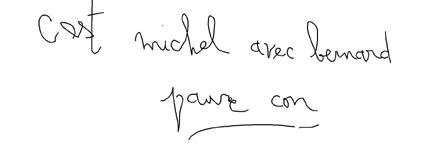 c'est michel avec bernard
pauvre con